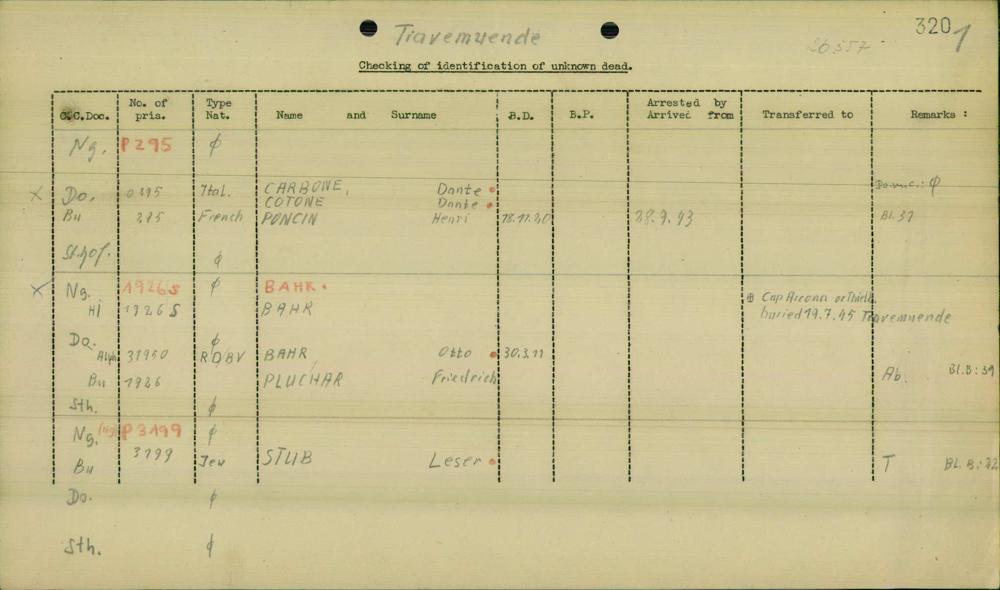 Travemuende
3201
26557
Checking of identification of unknown dead.
C.C.Doc. No. of pris. Type Nat. Name and Surname B.D. B.P. Arrested by Arrived from Transferred to Remarks :
Ng. P295 ϕ
X Do. Ital. CARBONE, Dante ϕ
COTONE Dante
Bu French PONCIN Henri Bl.37
St.hof. ϕ
X Ng. 1926S ϕ BAHR.
Hj 1926 S BAHR Cap Arcona or Thielb.
buried 19.7.45 Travemuende
Do. ϕ
Alph. 31950 R.DBV BAHR Otto 30.3.11
Bu 1926 PLUCHAR Friedrich Ab. Bl.B:39
Sth. ϕ
Ng. (Ng) P3199 ϕ
Bu 3199 Jew STUB Leser T BL.B:72
Do. ϕ
Sth. ϕ